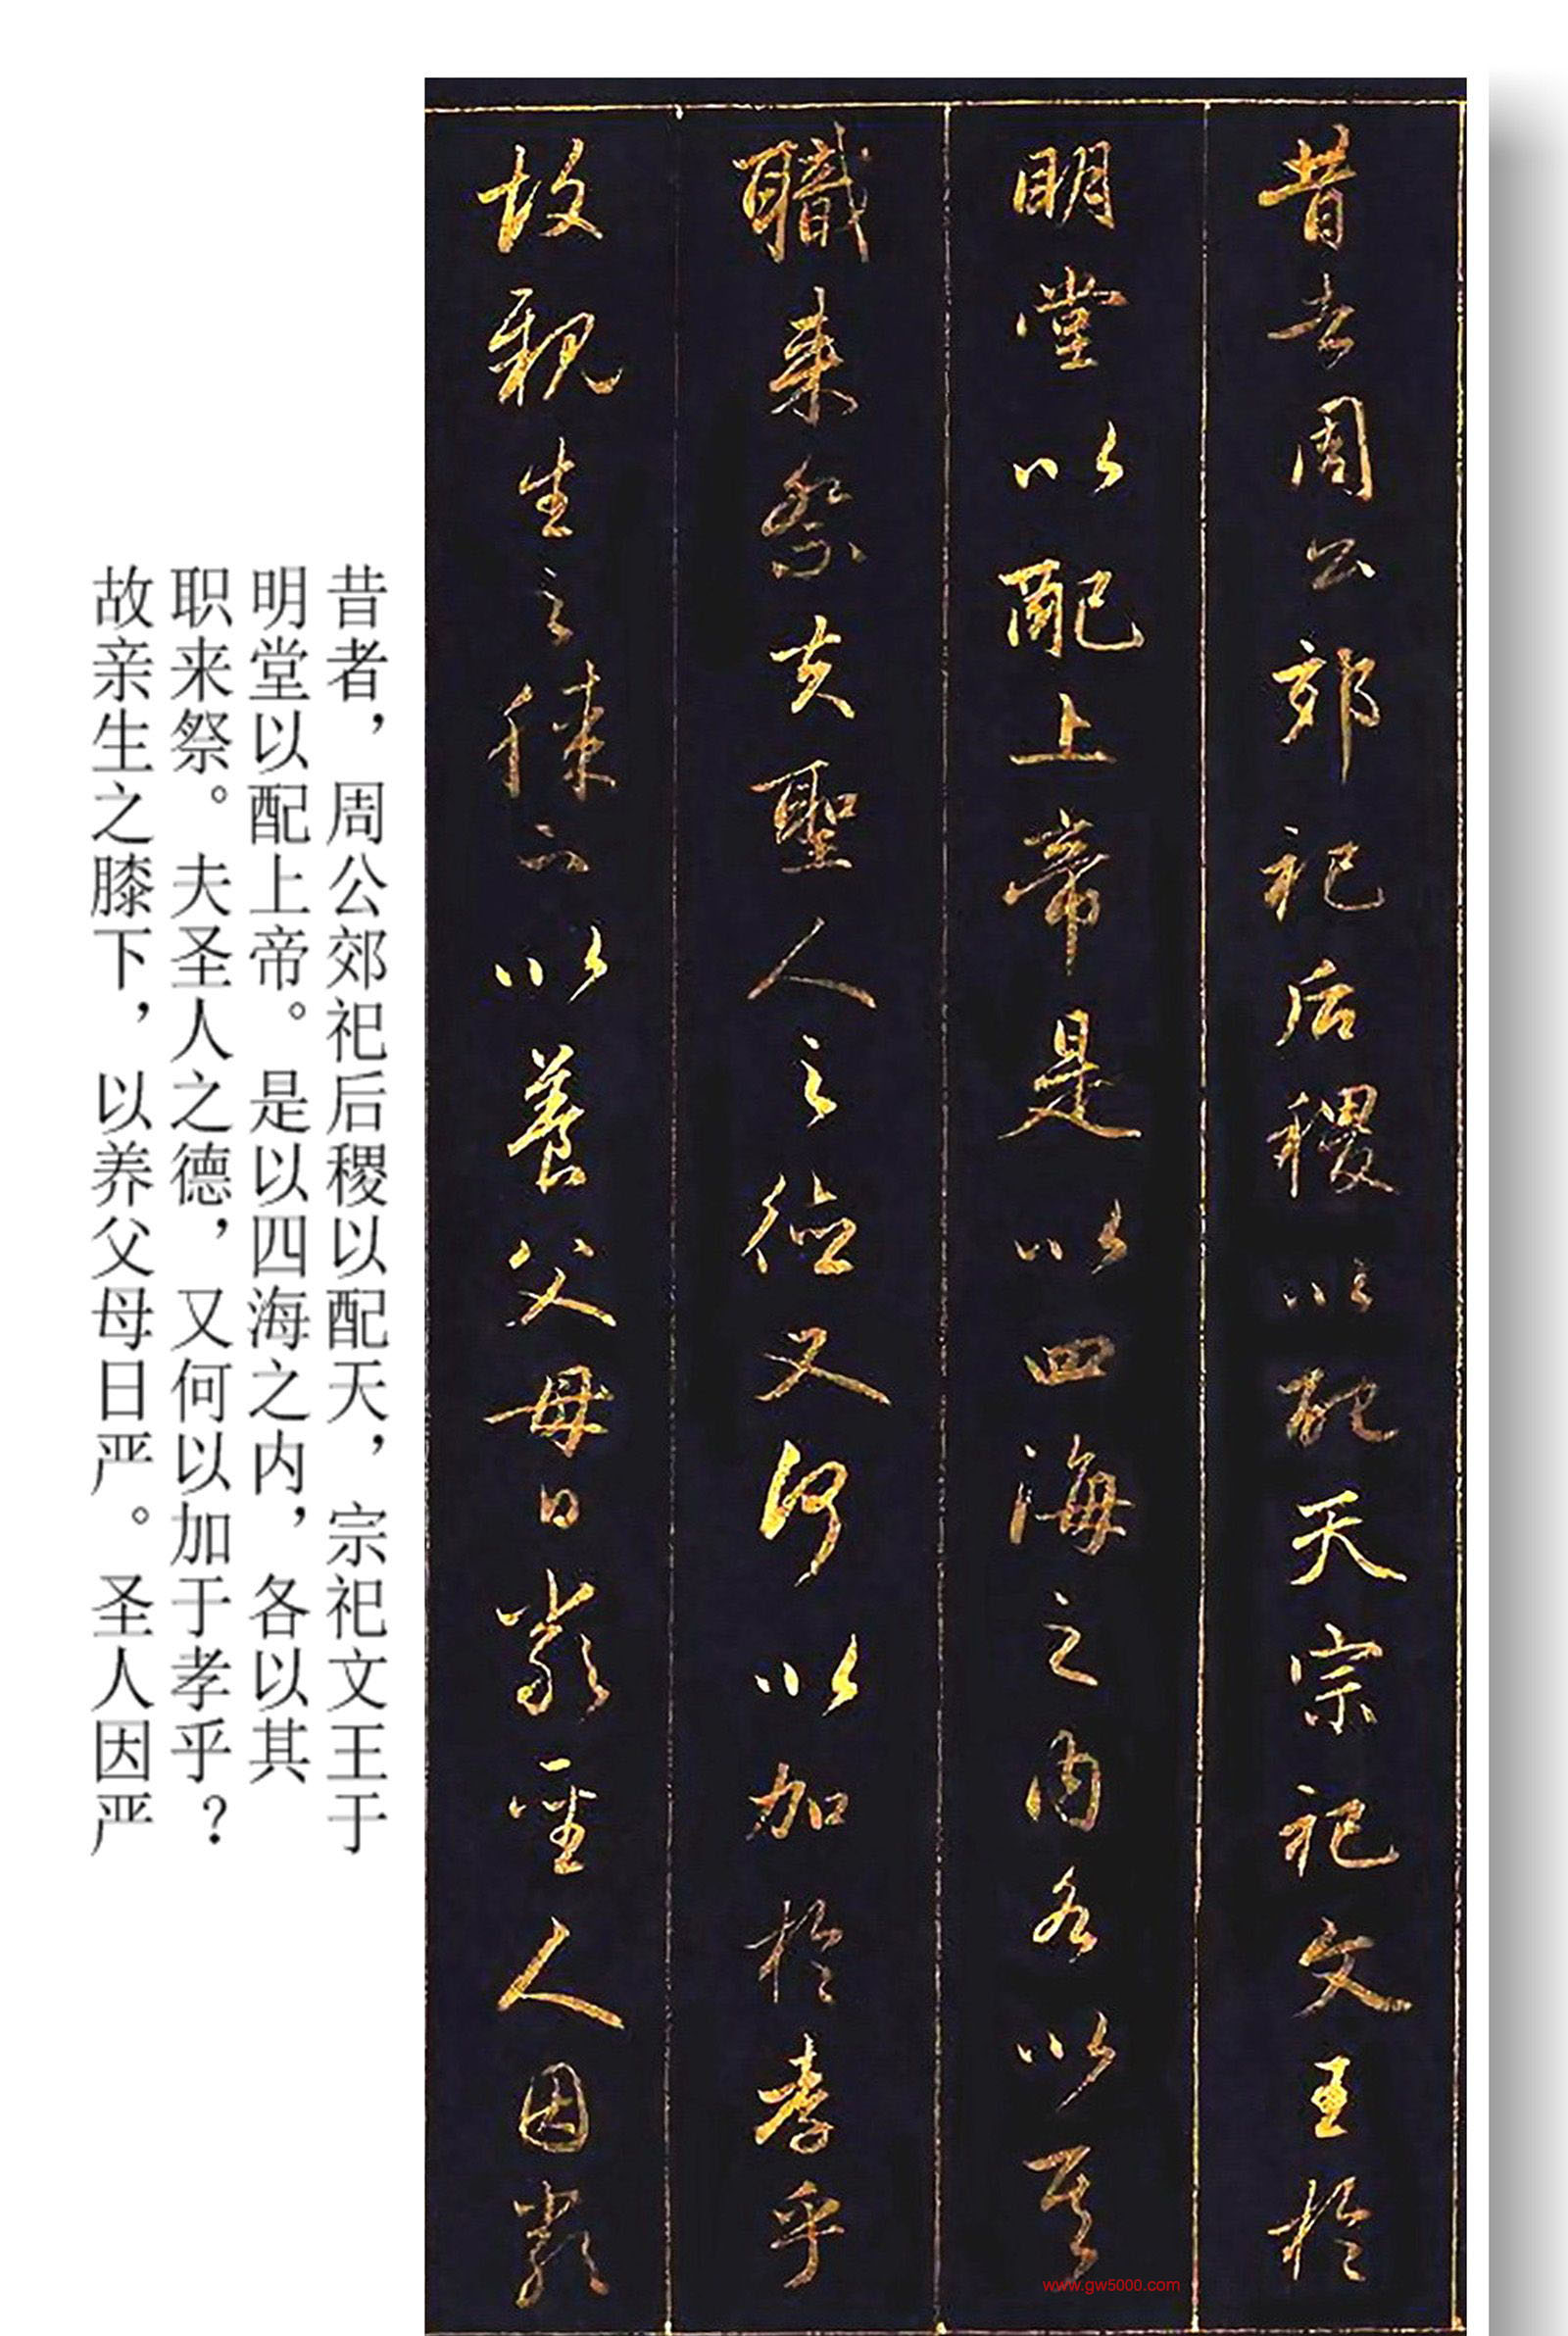 昔者周公郊祀后稷以配天宗祀文王於
明堂以配上帝是以四海之内各以其
職来祭夫聖人之德又何以加於孝乎
故親生之膝下以養父母日嚴聖人因嚴
昔者，周公郊祀后稷以配天，宗祀文王于
明堂以配上帝。是以四海之内，各以其
职来祭。夫圣人之德，又何以加于孝乎？
故亲生之膝下，以养父母日严。圣人因严
www.gw5000.com